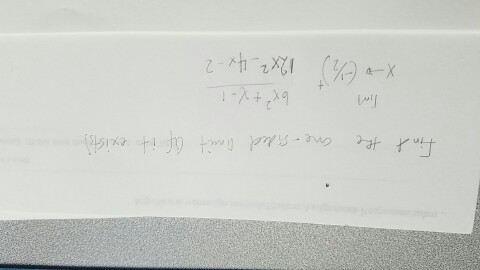 Find the one-sided limit (if it exists)
lim 6x²+x-1
x→(-1/2)⁺ 12x²-4x-2